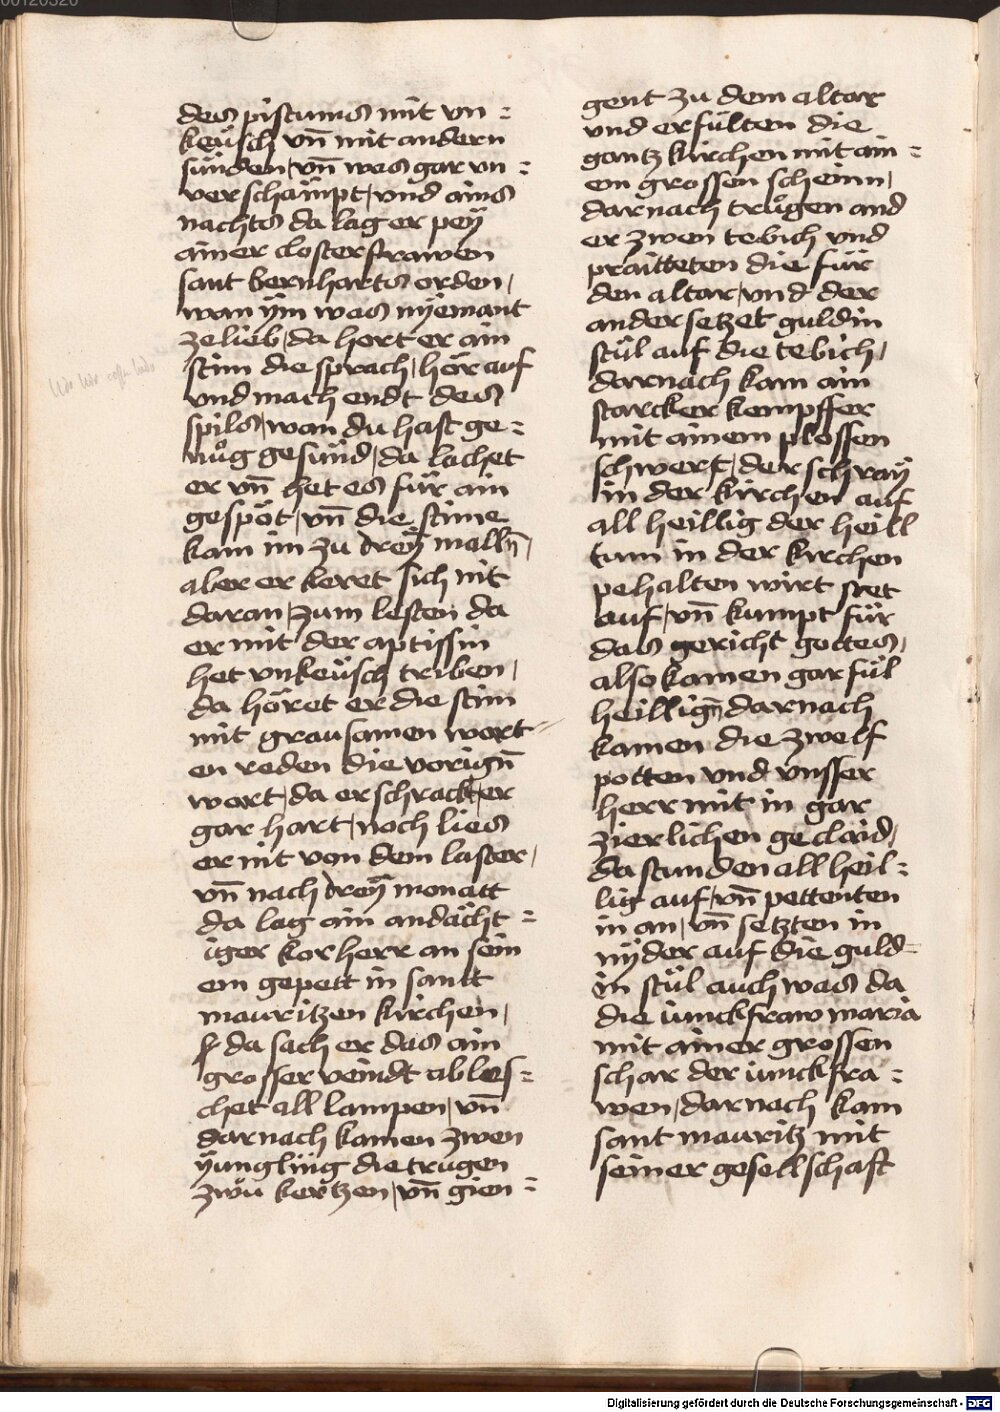 des pistums mit vn =
keüsch vn̄ mit andern
sünden / vn̄ was gar vn =
verschämpt / vnd ains
nachtes da lag er peÿ
ainer closterfrawen
sant bernharts orden /
wan ÿm was nÿemant
ze lieb / da hort er ain
stim die sprach / hör auf
vnd mach endt des
spils / wan du hast ge =
nůg gesünd / da lachet
er vn̄ het es für ain
gespöt / vn̄ die stime
kam im zu dreÿ malln̄ /
aber er keret sich nit
daran / zum lesten da
er mit der aptissin
het vnkeüsch triben /
da höret er die stim
mit grausamen wort =
en reden die vorign̄
wort / da erschrackt er
gar hart / noch lies
er nit von dem laster /
vn̄ nach dreÿ monatt
da lag ain andächt =
iger korherr an sein
em gepett in santt
mauritzen kirchen /
da sach er das ain
grosser veindt ables =
chet all lampen / vn̄
darnach kamen zwen
ÿüngling die trugen
zwü kertzen / vn̄ gien =
gent zu dem altar
vnd erfülten die
gantz kirchen mit ain =
em grossen scheinn /
darnach trůgen and
er zwen tebich vnd
praitteten die für
den altar / vnd der
ander setzet guldin
stül auf die tebich /
darnach kam ain
starcker kempffer
mit ainem plossen
schwert / der schraÿ
in der kirchen auf
all heillig der heill
tum in der kirchen
pehalten wirt stet
auf / vn̄ kumpt für
das gericht gottes /
also kamen gar fül
heillign̄ darnach
kamen die zwelf
potten vnd vnsser
herr mit in gar
zierlichen geclaid /
da stunden all heil =
lig auf / vn̄ pettenten
in an / vn̄ setzten in
nÿder auf die guld =
in stül auch was da
die iunckfraw maria
mit ainer grossen
schar der iunckfra =
wen / darnach kam
sant mauritz mit
seiner gesellschaft
Digitalisierung gefördert durch die Deutsche Forschungsgemeinschaft - DFG